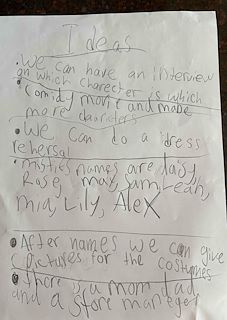 Ideas
• We can have an interview
on which charecter is which
• Comidy movie and mabe
more charicters
• We can do a dress
rehersal
names are daisy
Rose, may, Sam, Leah,
mia, Lily, Alex
• After names we can give
pictures for the costumes
• there is a mom dad
and a store maneger